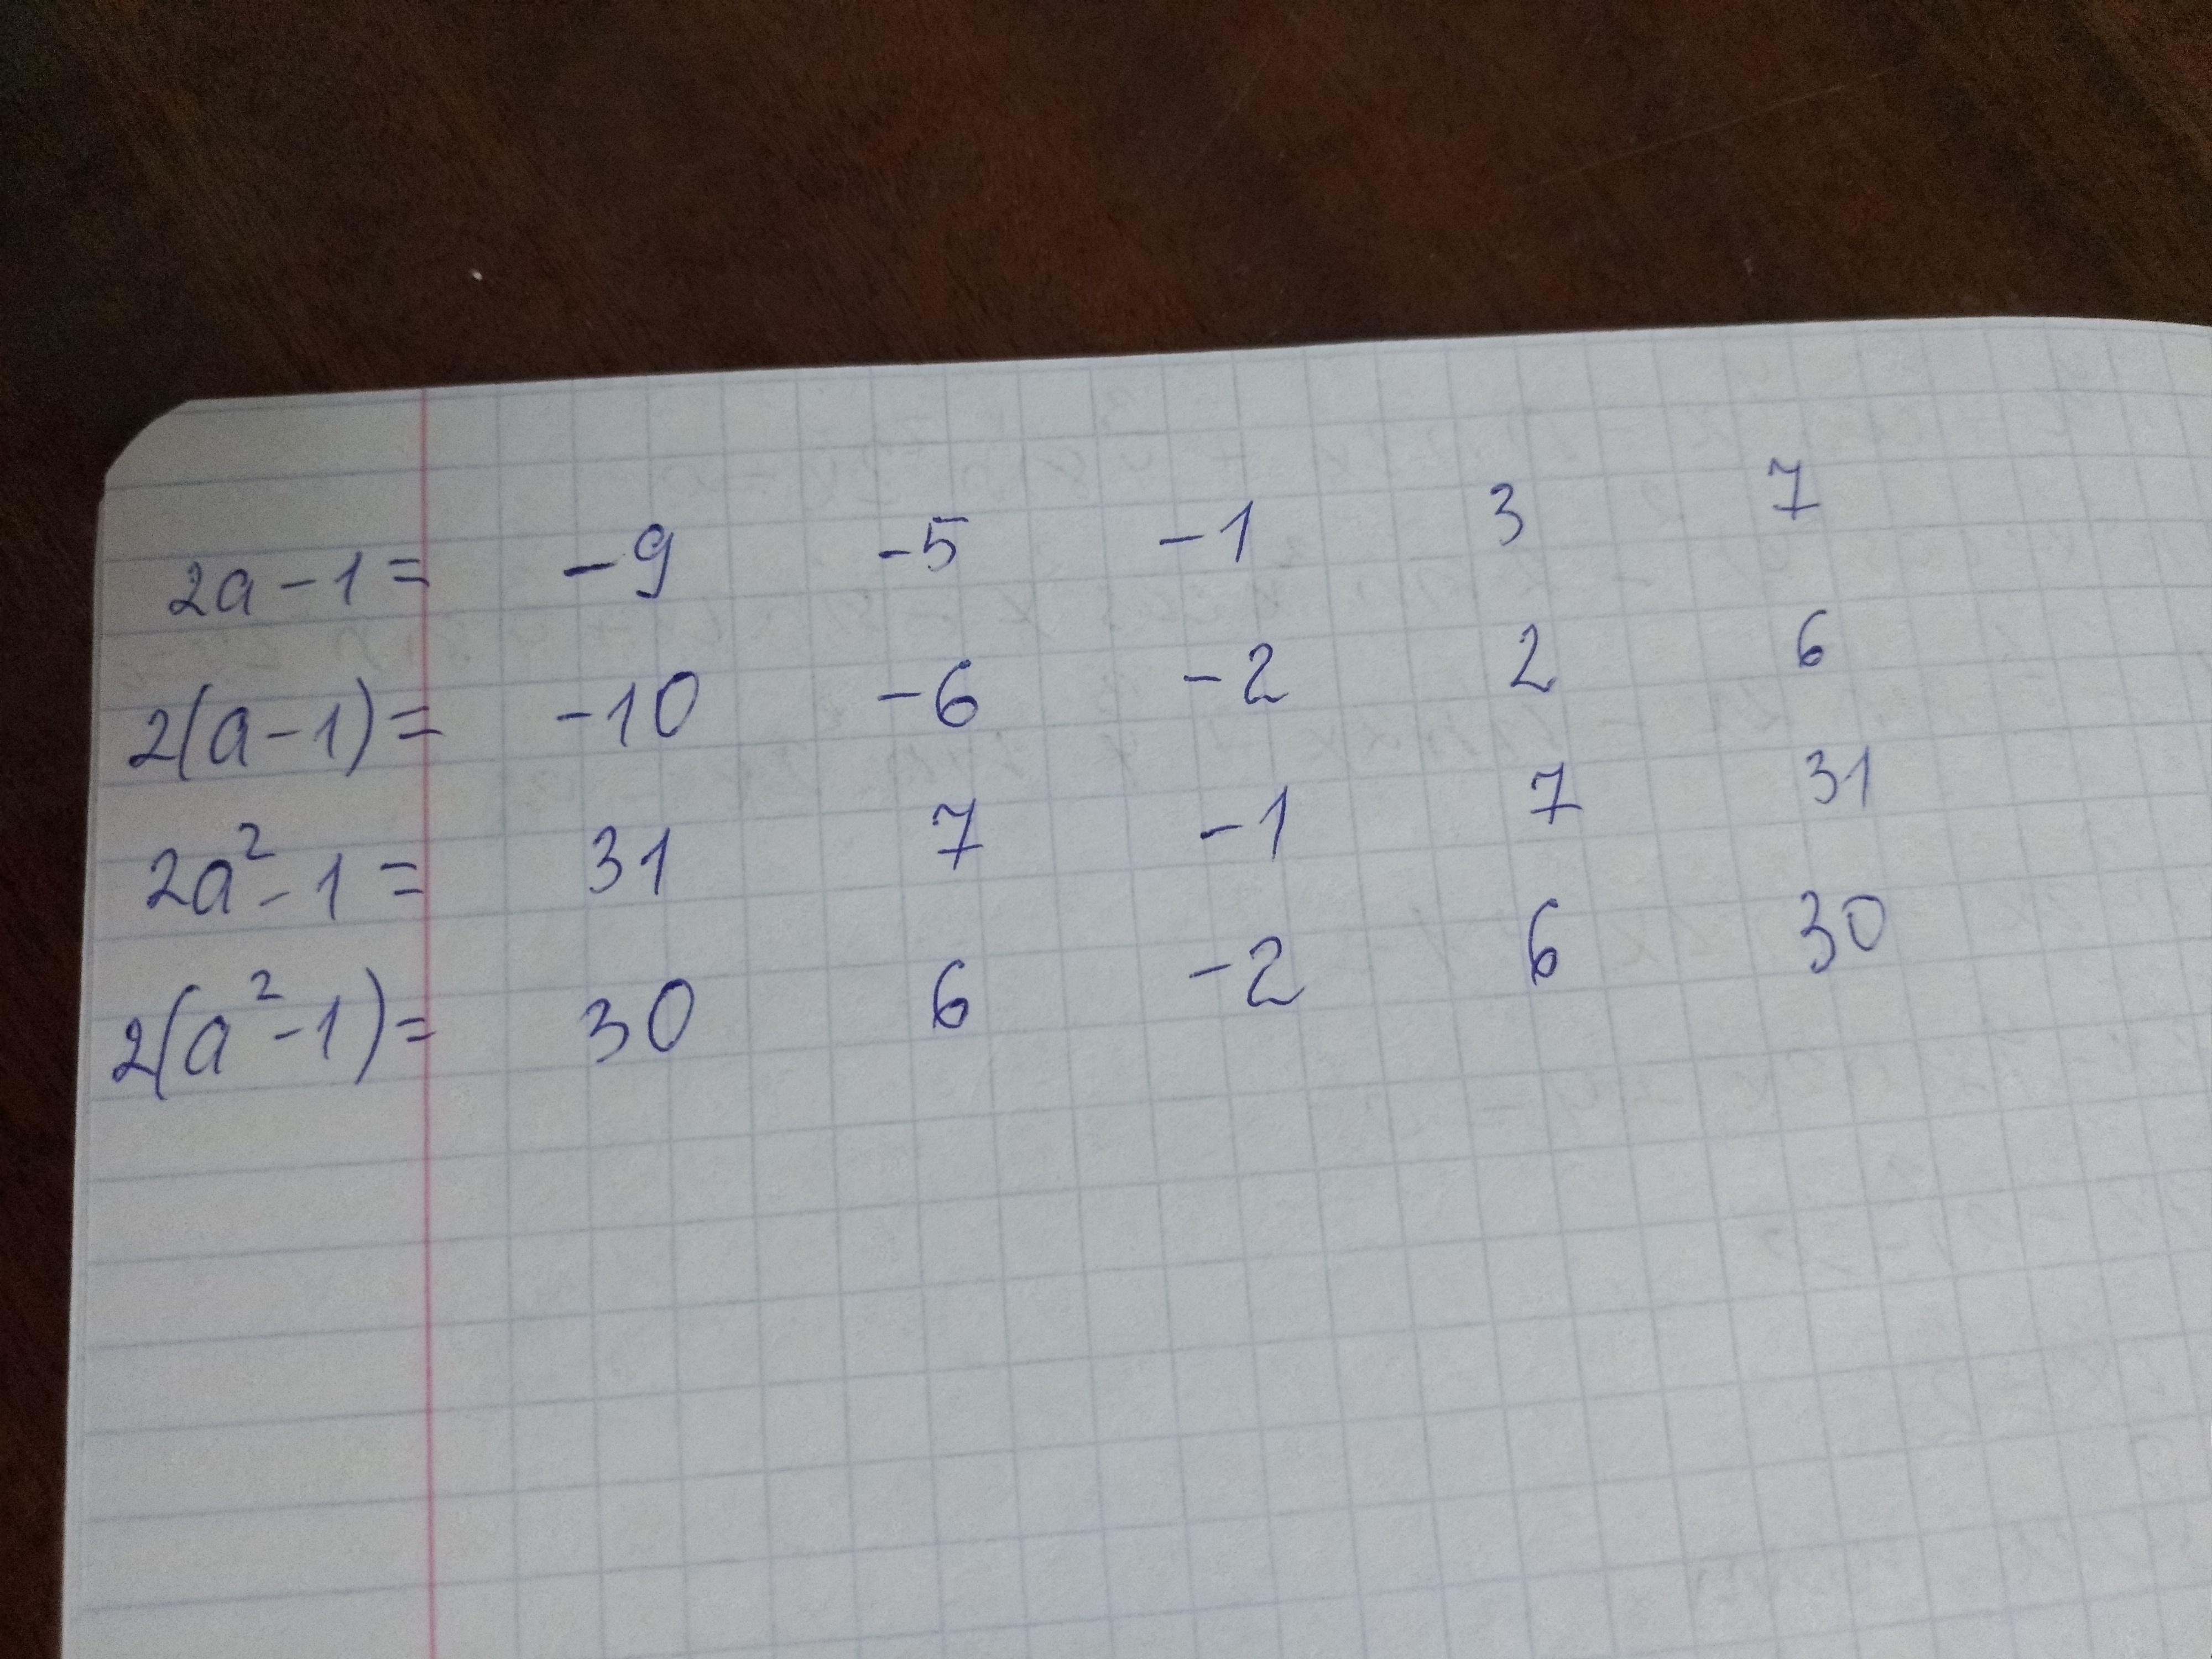 2a-1= -9 -5 -1 3 7
2(a-1)= -10 -6 -2 2 6
2a²-1= 31 7 -1 7 31
2(a²-1)= 30 6 -2 6 30